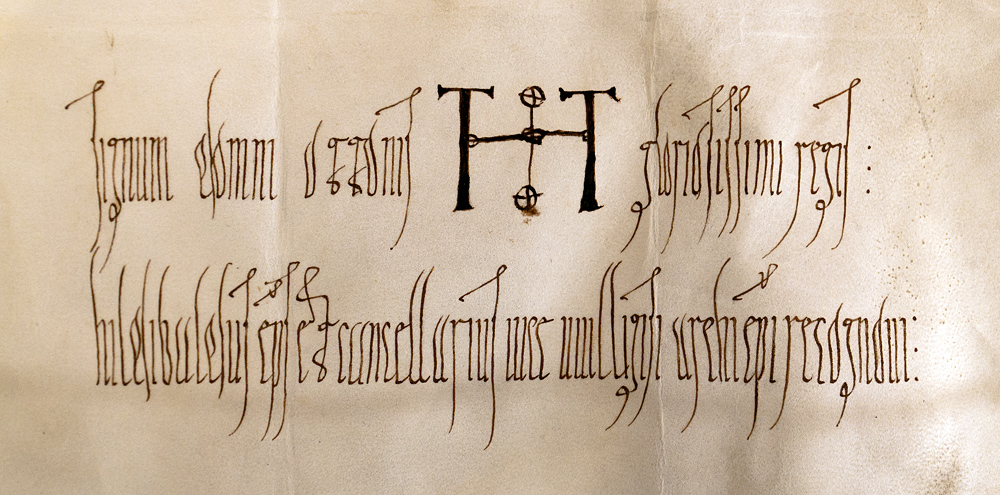 Signum domni ottonis gloriosissimi regis :
hildibaldus ep̄s et cancellarius uice uuilligisi archiep̄i recognoui :